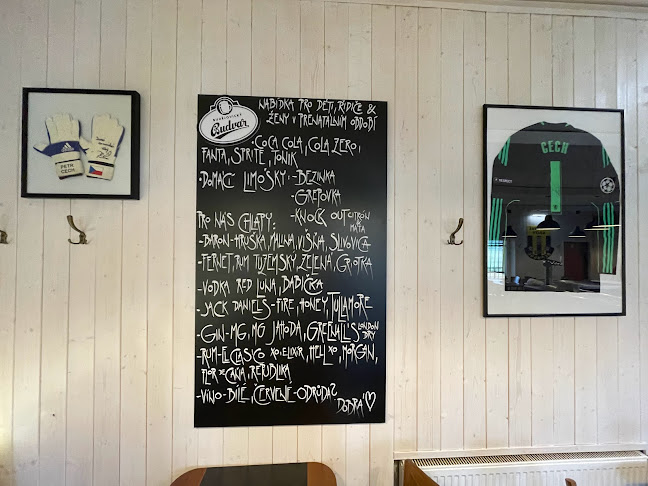 BUDĚJOVICKÝ
Budvar
NABÍDKA PRO DĚTI, ŘIDIČE &
ŽENY V PRENATÁLNIM ODDOBÍ
·COCA COLA, COLA ZERO,
FANTA, SPRITE, TONIK
·DOMACÍ LIMOŠKY: -BEZINKA
-GREPOVKA
-KNOCK OUT CITRÓN MATA
PRO NÁS CHLAPY:
-BARON-HRUŠKA, MALINA, VIŠŇA, SLIVOVICA
-FERNET, RUM TUZEMSKÝ, ZELENÁ, GRIOTKA
-VODKA RED LUNA, BABIČKA
-JACK DANIELS-FIRE, HONEY, TULLAMORE
-GIN-MG, MG JAHODA, GREENALL'S LONDON DRY
-RUM-EL CLASICO XO, ELIXÍR, HELL XO, MORGAN,
FLOR DE CAŇA, REPUBLIKA
-VÍNO-BÍLÉ, ČERVENÉ-ODRŮDA?
DOBRÁ!
PETR
CECH
CECH
1